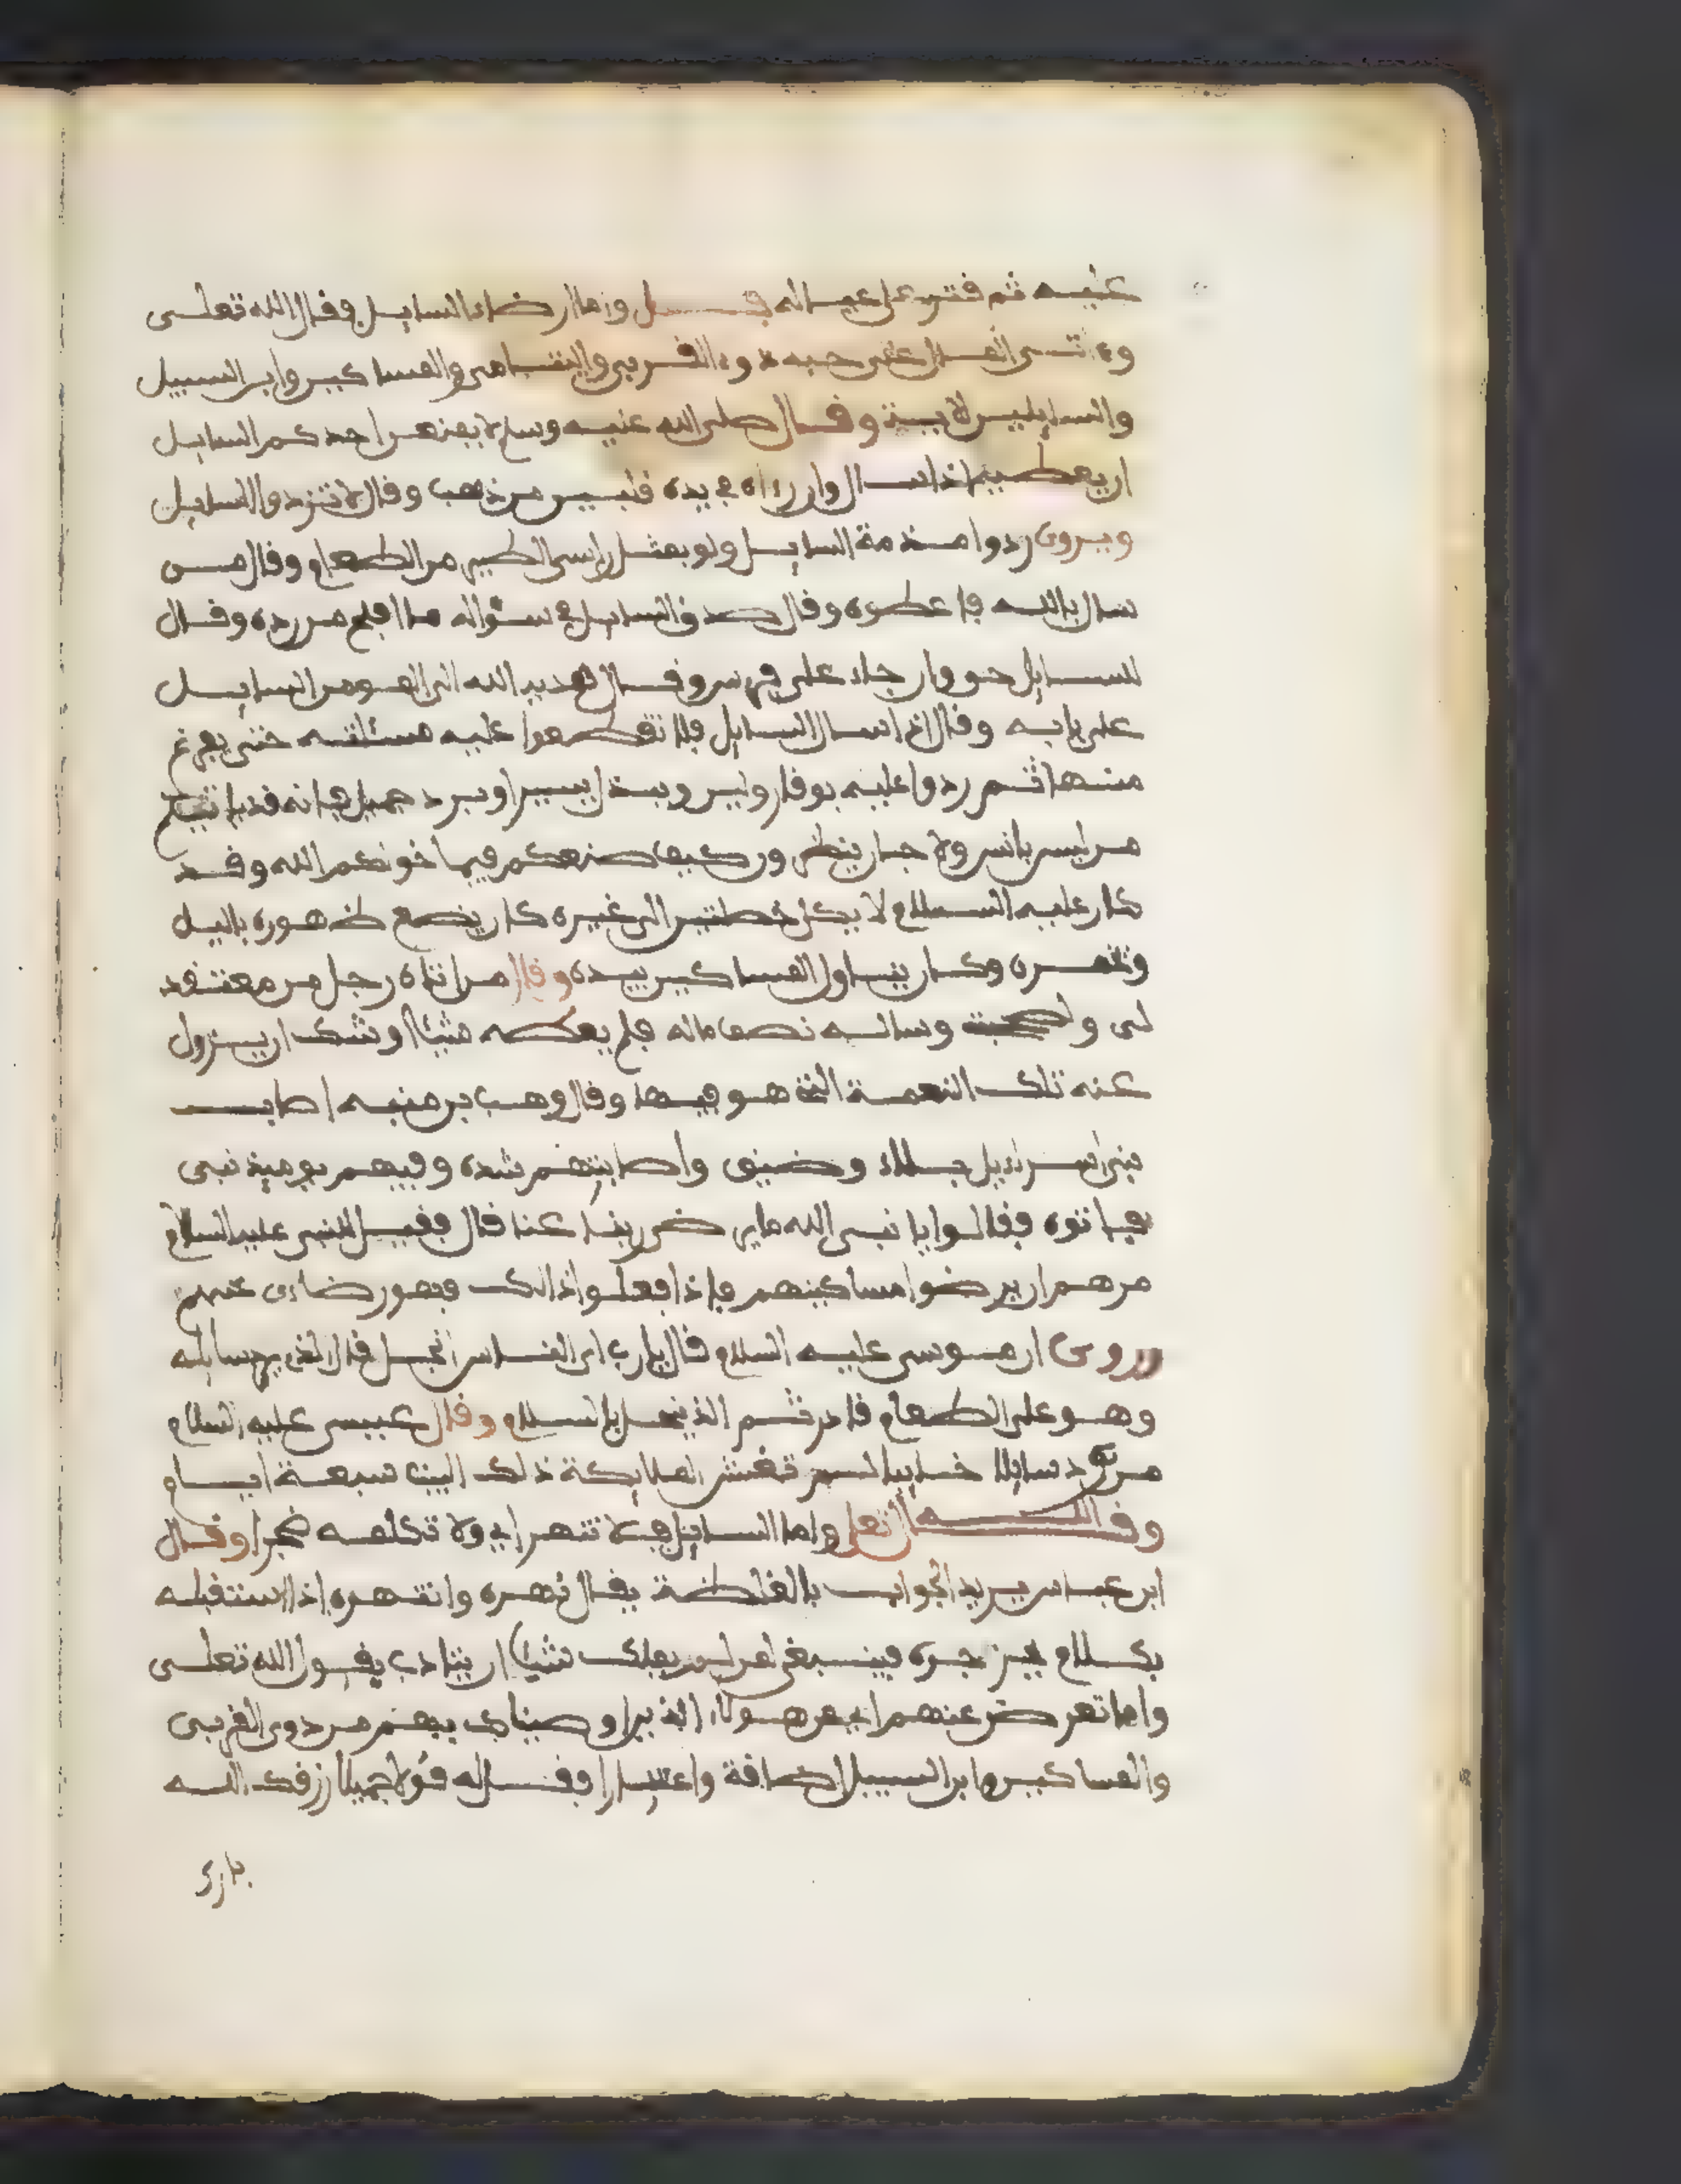 عليه ثم فتر على عياله فصل واما ارضاء السايل فقال الله تعلى
وءاتى المال على حبه ذوى القربى واليتامى والمساكين وابن السبيل
والسايلين لاية وقال صلى الله عليه وسلم لا يمنعن احدكم السايل
ان يعطيه اذا سال وان رءاه في يده قلبين من ذهب وقال لا تردوا السايل
ويروى ردوا مذمة السايل ولو بمثل راس الطير من الطعام وقال من
سال بالله فاعطوه وقال صدق السايل في سؤاله ما افلح من رده وقال
للسايل حق وان جاء على فرس وقال هدية الله الى المومن السايل
على بابه وقال اذا سال السايل فلا تقطعوا عليه مسئلته حتى يفرغ
منها ثم ردوا عليه بوقار ولين وببذل يسير او برد جميل فانه قد ياتيكم
من ليس بانس ولا جان ينظرون كيف صنعكم فيما خولكم الله وقد
كان عليه السلام لا يكل خصلتين الى غيره كان يضع طهوره باليل
وتخمره وكان يناول المساكين بيده وقال من اتاه رجل من معتفد
لى وساله نصف ماله فلم يعطه شيئا اوشك ان يزول
عنه تلك النعمة التى هو فيها وقال وهب بن منبه اصاب
بنى اسراءيل بلاء وضيق واصابتهم شدة وفيهم يوميذ نبى
فاتوه فقالوا يا نبى الله عنا قال فقيل للنبى عليه السلام
مرهم ان يرضوا مساكينهم فاذا فعلوا ذالك فهو رضاءى عنهم
وروى ان موسى عليه السلام قال يارب اى الناس ابخل قال الذى يرد سايله
وهو على الطعام قادر ثم الذى يبخل بالسلام وقال عيسى عليه السلام
من رد سايلا خايبا لم تغش الملايكة ذلك البيت سبعة ايام
وقال الله تعلى واما السايل فلا تنهر اى ولا تكلمه ضجرا وقال
ابن عباس يريد الجواب بالغلظة يقال نهره وانتهره اذا استقبله
بكلام يزجره فينبغى لمن لم يملك شيئا ان يتادب بقول الله تعلى
واما تعرضن عنهم اى عن هولاء الذين اوصيناك بهم من ذوى القربى
والمساكين وابن السبيل اضافة واعتبارا فقل له قولا جميلا رزقك الله
بارك